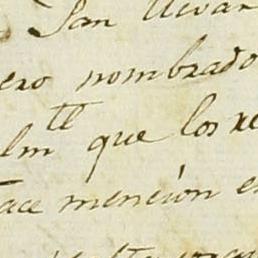 San llevar
ero nombrado
lm.te que los re
ace mención e